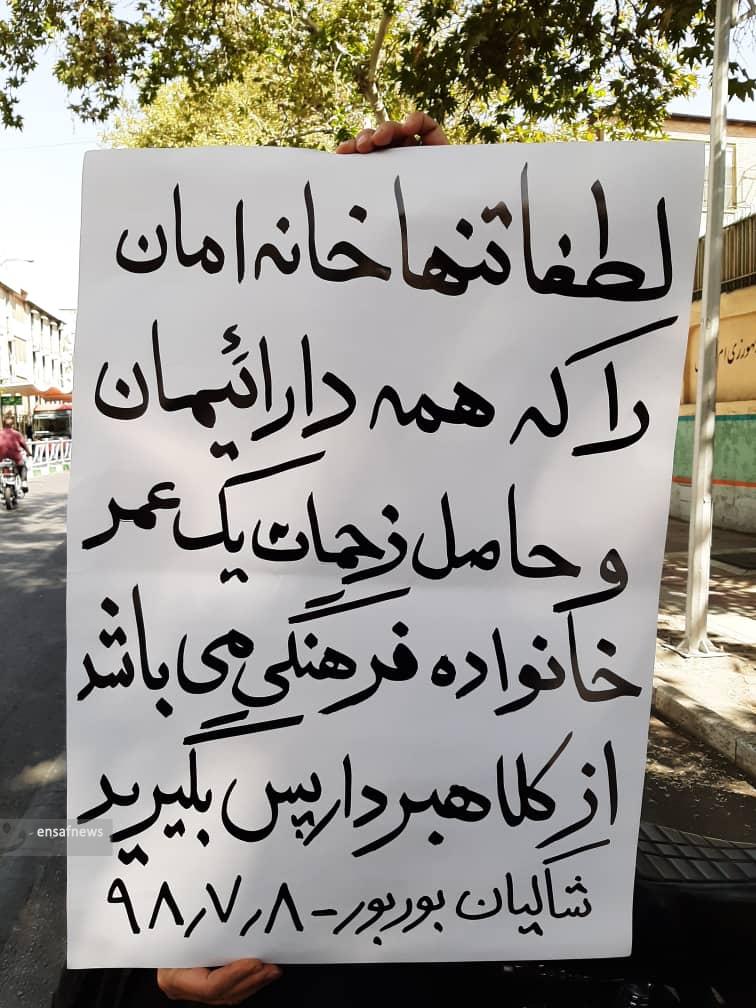 لطفا تنها خانه امان
را که همه دارائیمان
و حاصل زحمات یک عمر
خانواده فرهنگی می باشد
از کلاهبردار پس بگیرید
شاکیان بوربور - ۹۸٫۷٫۸
ensafnews